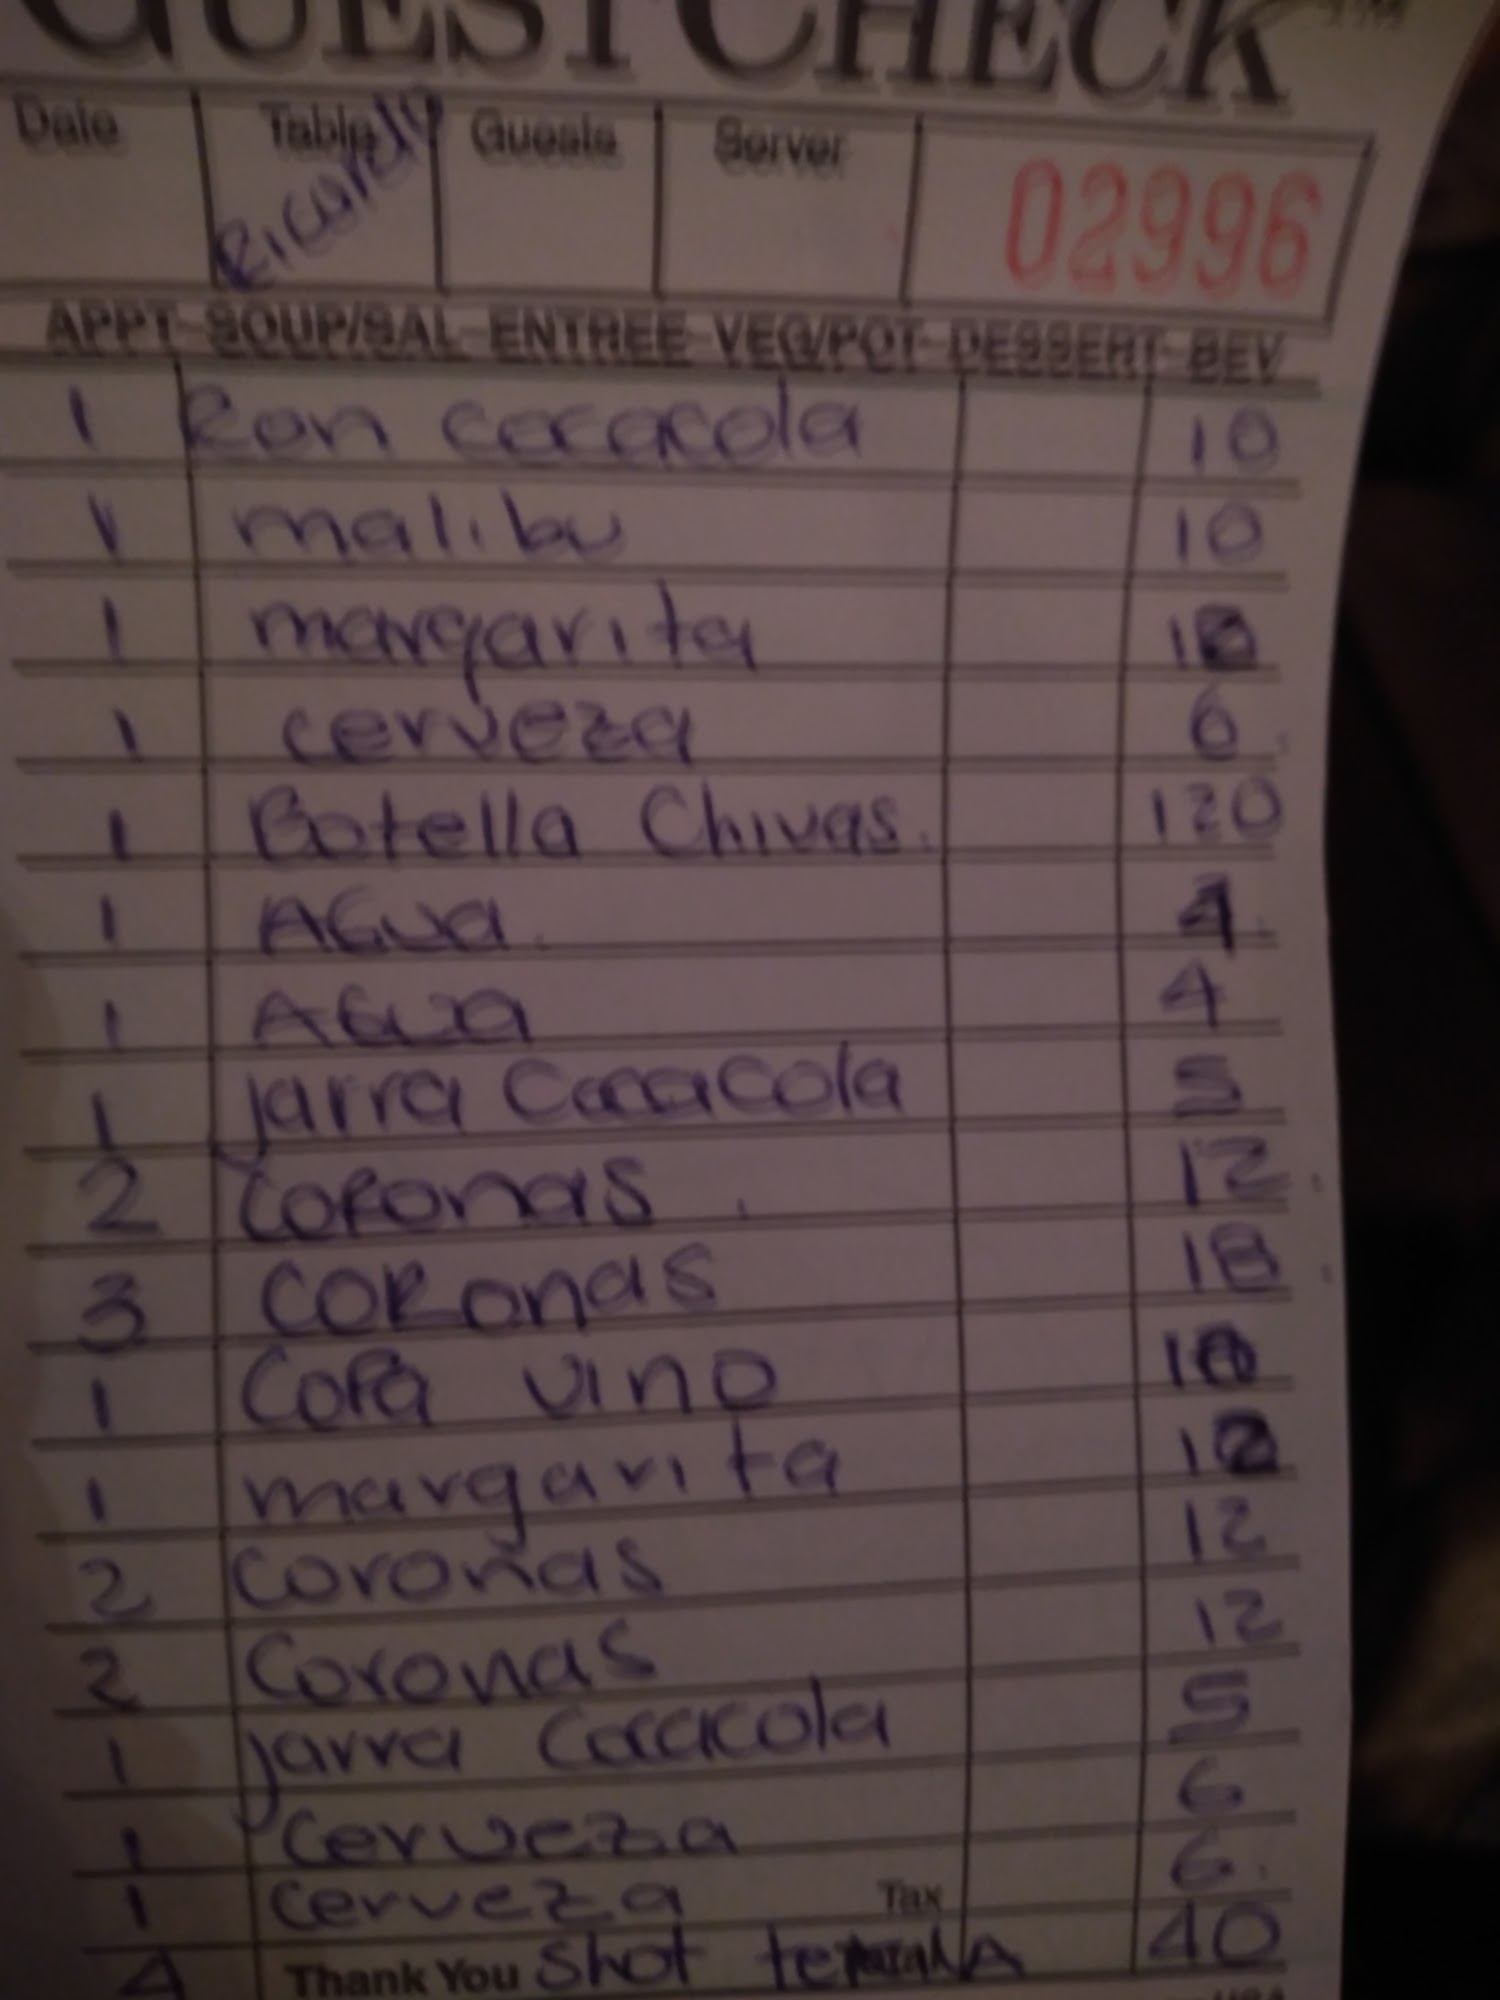 GUEST CHECK
Date Table Guests Server
02996
APPT-SOUP/SAL-ENTREE-VEG/POT-DESSERT-BEV
1 Ron cocacola 10
1 malibu 10
1 margarita
1 cerveza 6
1 Botella Chivas. 120
1 AGua 4
1 AGua 4
1 jarra CocaCola 5
2 Coronas 12
3 CORonas 18
1 Copa vino
1 margarita
2 Coronas 12
2 Coronas 12
1 jarra Cocacola 5
1 Cerveza 6
1 Cerveza Tax 6
4 Thank You Shot 40